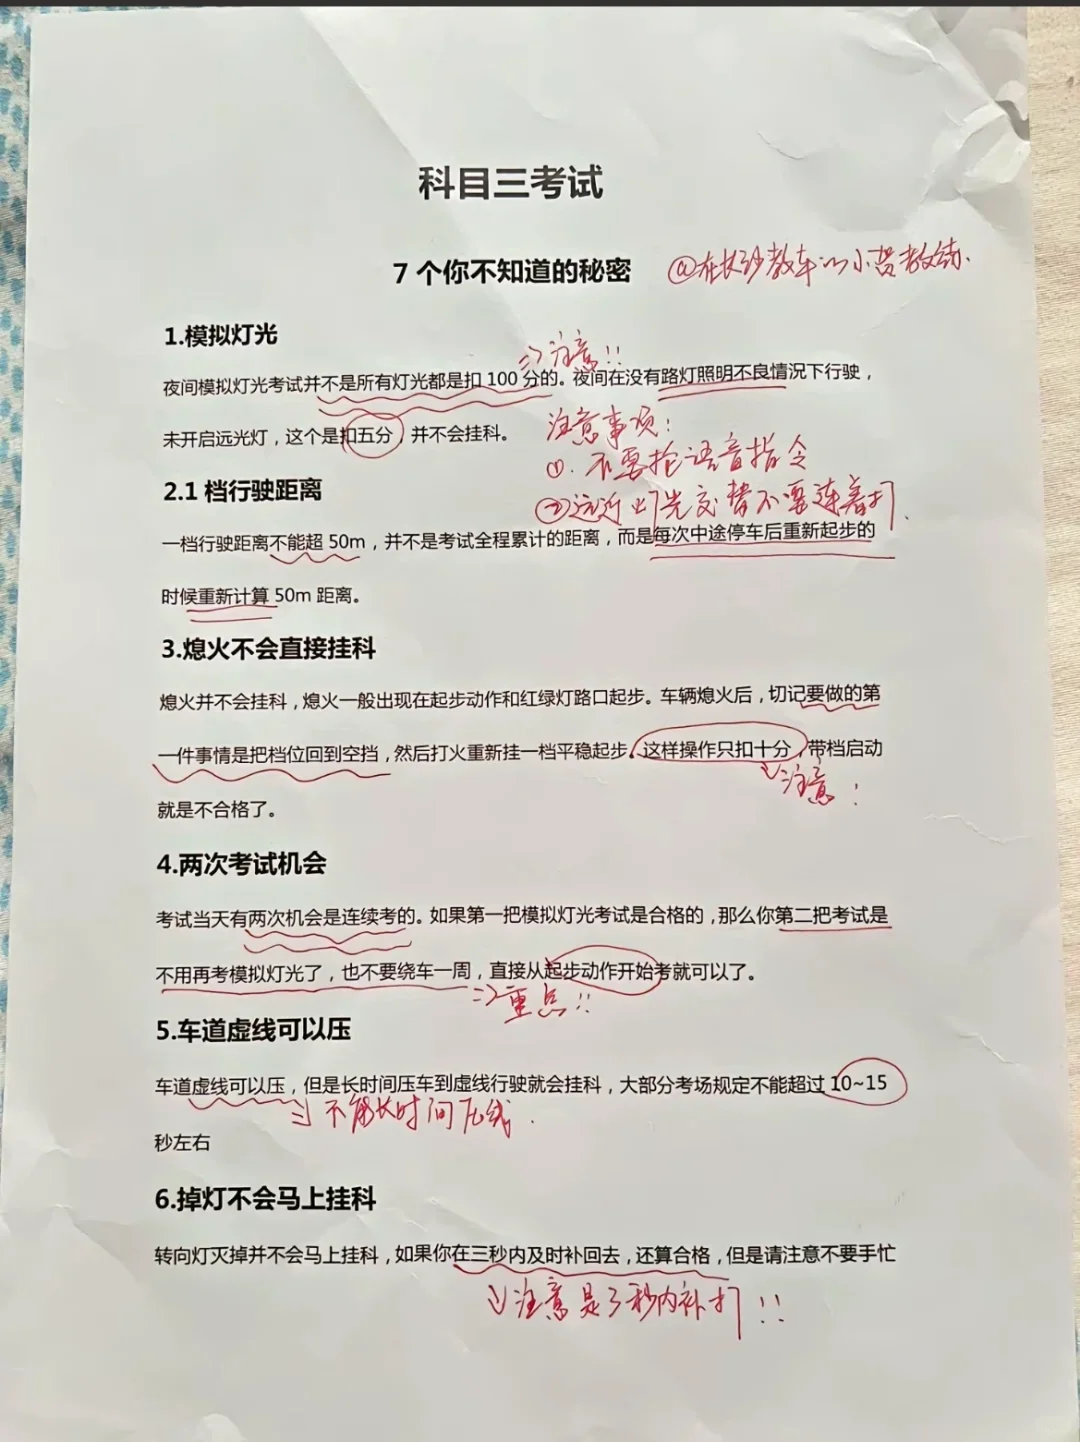 科目三考试
7个你不知道的秘密 @在长沙教车的小贺教练.
1.模拟灯光
=> 注意!!
夜间模拟灯光考试并不是所有灯光都是扣 100 分的。夜间在没有路灯照明不良情况下行驶，
未开启远光灯，这个是扣五分，并不会挂科。
注意事项:
①. 不要抢语音指令
②远近灯光交替不要连着打.
2.1 档行驶距离
一档行驶距离不能超 50m，并不是考试全程累计的距离，而是每次中途停车后重新起步的
时候重新计算 50m 距离。
3.熄火不会直接挂科
熄火并不会挂科，熄火一般出现在起步动作和红绿灯路口起步。车辆熄火后，切记要做的第
一件事情是把档位回到空挡，然后打火重新挂一档平稳起步。这样操作只扣十分，带档启动
注意!
就是不合格了。
4.两次考试机会
考试当天有两次机会是连续考的。如果第一把模拟灯光考试是合格的，那么你第二把考试是
不用再考模拟灯光了，也不要绕车一周，直接从起步动作开始考就可以了。
=> 重点!!
5.车道虚线可以压
车道虚线可以压，但是长时间压车到虚线行驶就会挂科，大部分考场规定不能超过 10~15
=> 不能长时间压线.
秒左右
6.掉灯不会马上挂科
转向灯灭掉并不会马上挂科，如果你在三秒内及时补回去，还算合格，但是请注意不要手忙
注意是3秒内补打!!